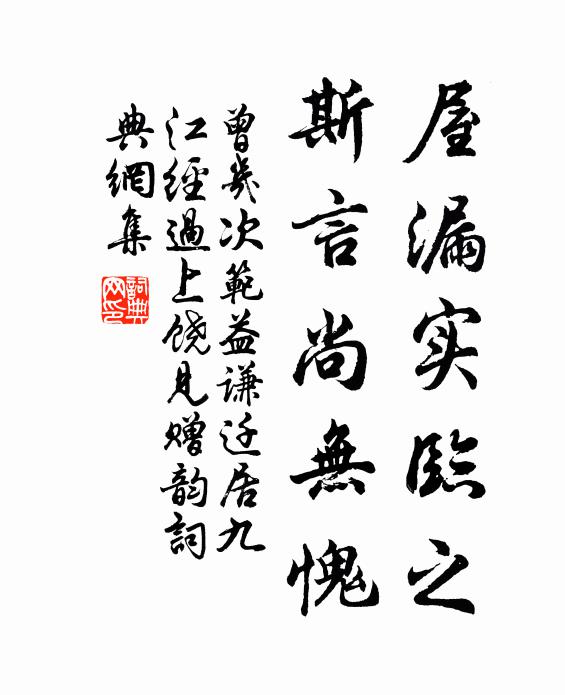 屋漏实臨之
斯言尚無愧
曾幾次範益谦迁居九
江經過上饶見赠韵詞
典網集
詞典網印